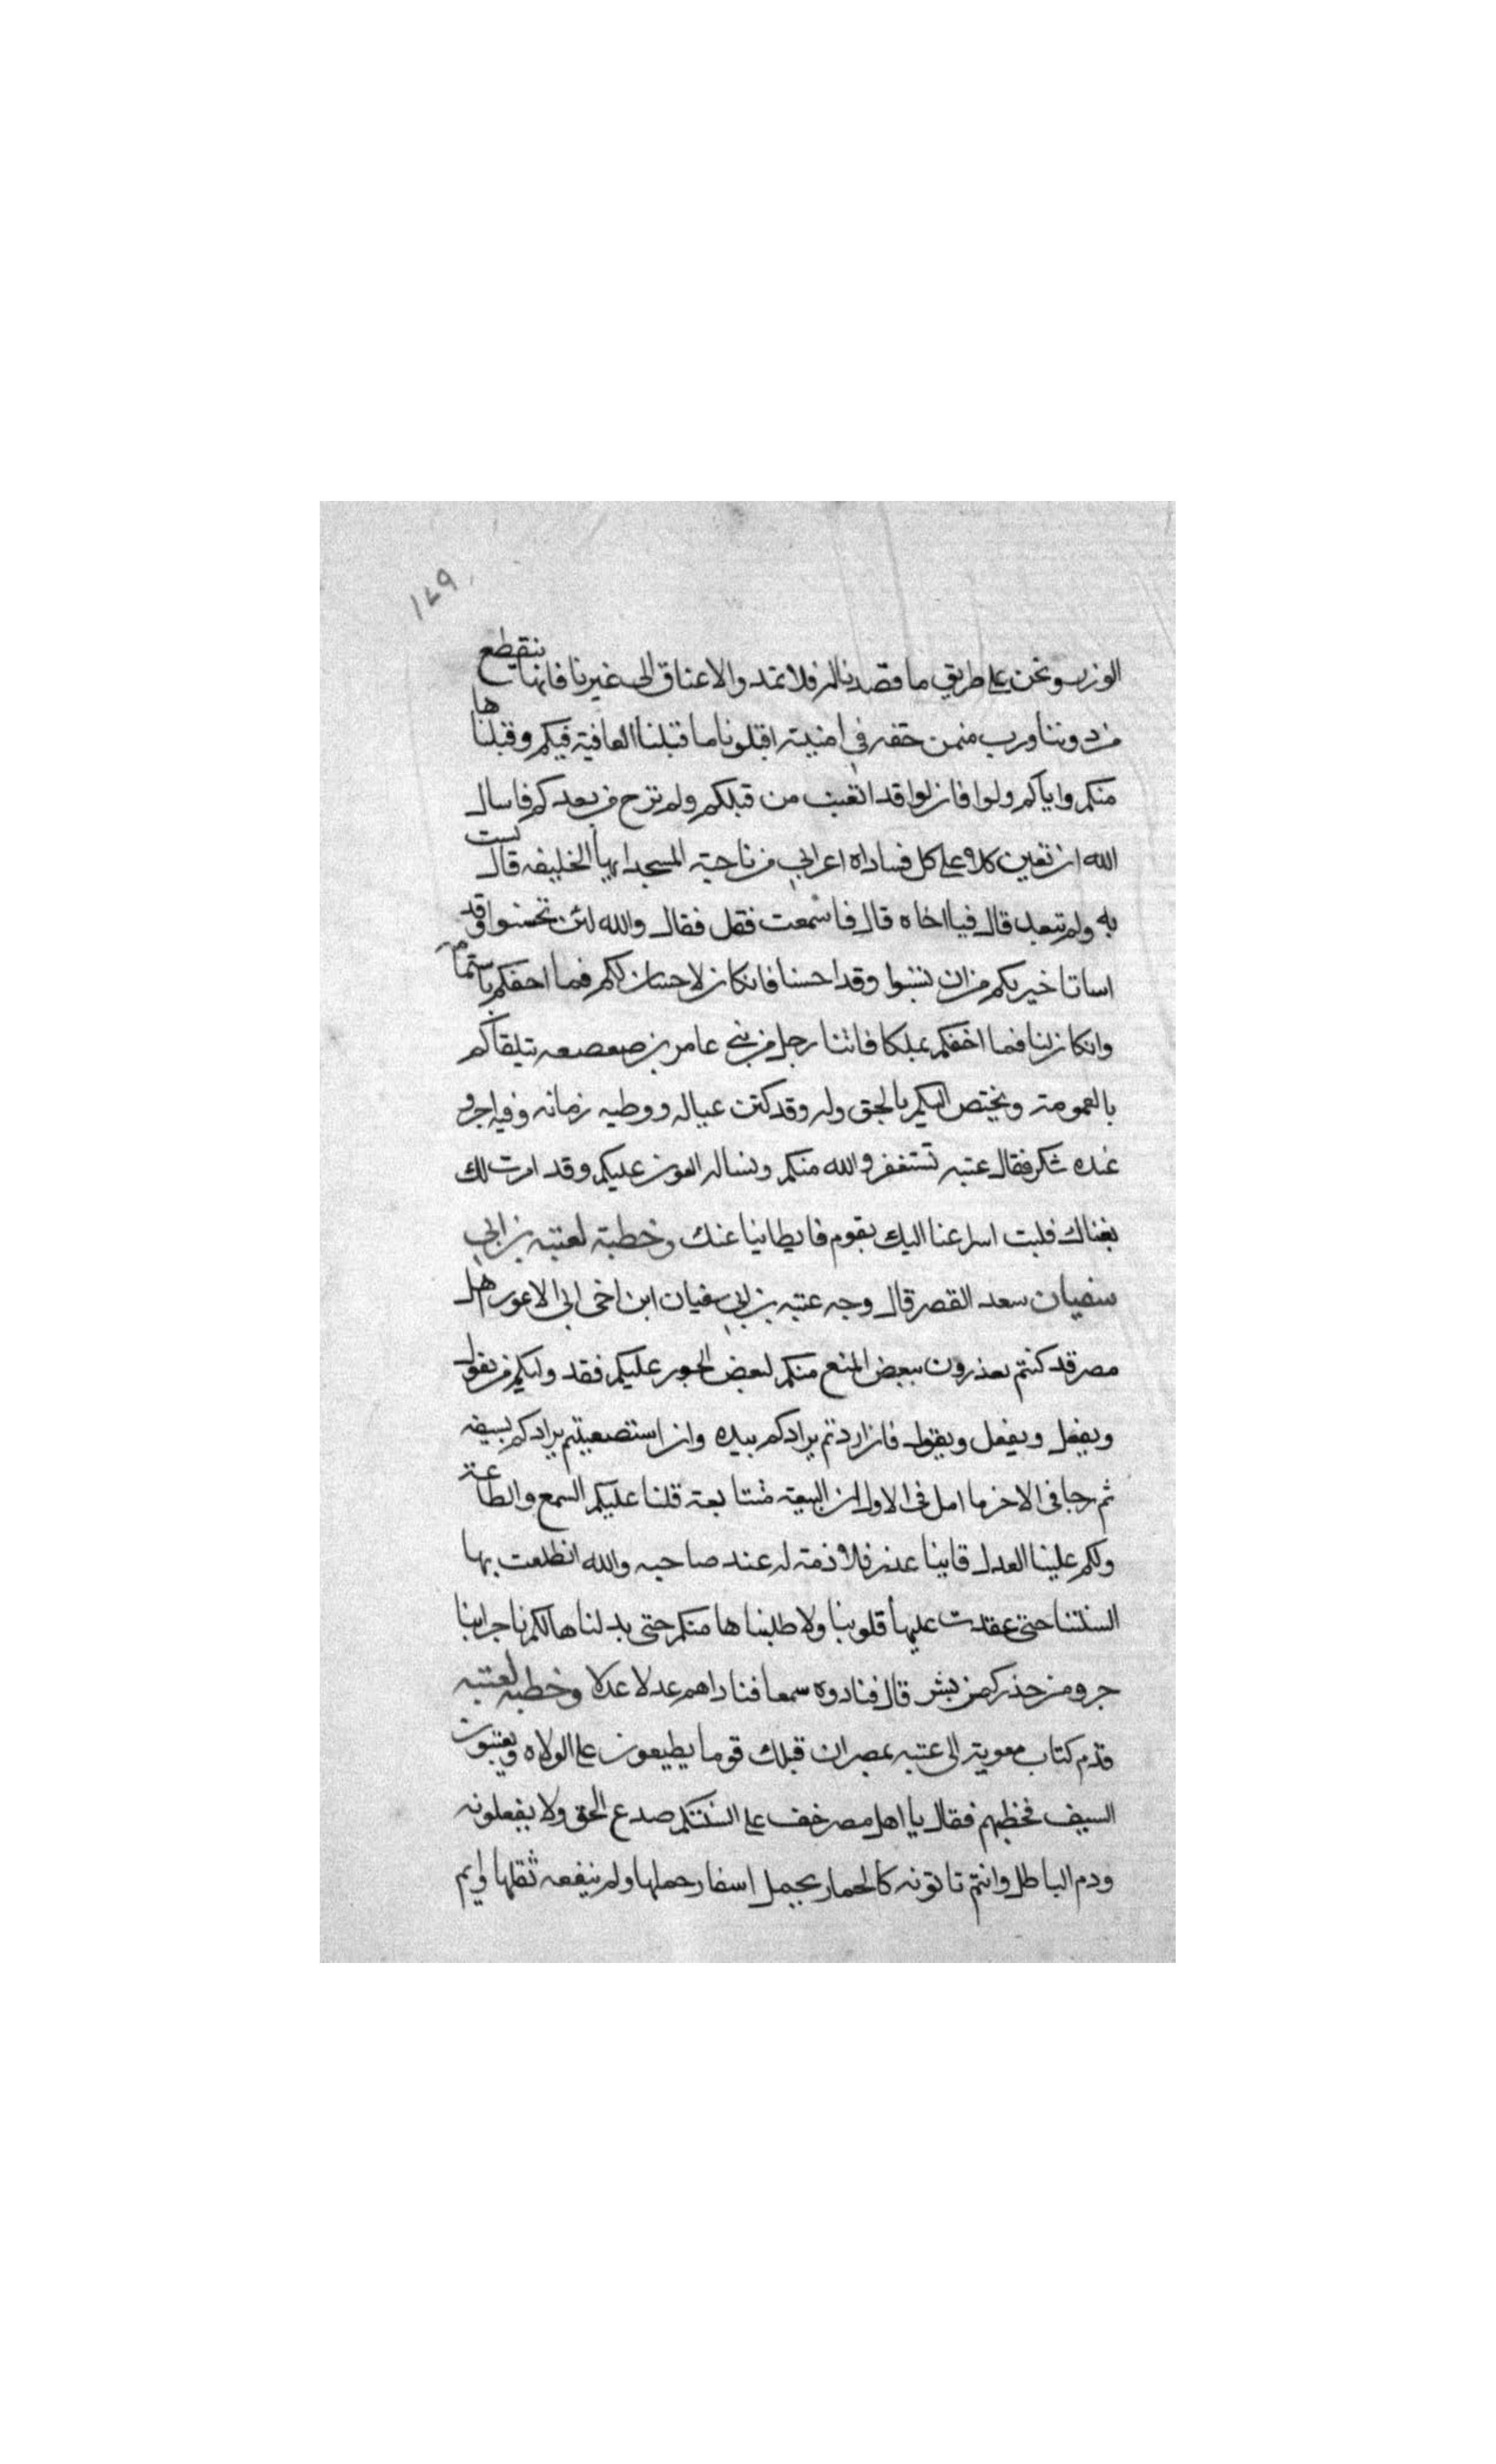 ١٤٩
الوزر ونحن على طريق ما قصدنا له فلا تمدوا لاعناق الى غيرنا فانها تنقطع
من دوننا ورب متمن حتفه في امنيته اقبلونا ما قبلنا العافية فيكم وقبلناها
منكم واياكم ولوا فان لوا قد اتعبت من قبلكم ولم ترح من بعدكم فاسال
الله ان تعين كلا على كل فناداه اعرابي من ناحية المسجد ايها الخليفه قال لست
به ولم تبعد قال فيا اخاه قال فاسمعت فقل فقال والله لئن تحسنوا وقد
اسانا خير بكم من ان تسوا وقد احسنا فان كان لاحسان لكم فما احقكم باستتمامه
وان كان لنا فما احقكم بملكافاتنا رجل من بني عامر بن صعصعه تيلقاكم
بالعمومة ويختص اليكم بالحق وله وقد كثرت عياله ووطيه زمانه وفيه اجر و
عنده شكر فقال عتبه نستغفر والله منكم ونساله العون عليكم وقد امرت لك
بغناك فليت اسراعنا اليك يقوم فابطاينا عنك وخطبة لعتبه بن ابي
سفيان سعد القصر قال وجه عتبه بن ابي سفيان ابن اخي ابي الاعور اهل
مصر قد كنتم تعذرون ببعض المنع منكم لبعض الجور عليكم فقد وليكم من يقول
ويفعل ويفعل ويقول فان اردتم يرادكم بيده وان استصعبتم يرادكم بسيفه
ثم رجا في الاخر ما امل في الاول ان البيعة متتابعة قلنا عليكم السمع والطاعة
ولكم علينا العدل فاينا غدر فلا ذمة له عند صاحبه والله انطلعت بها
السنتنا حتى عقدت عليها قلوبنا ولا طلبناها منكم حتى بدلناها لكم ناجرا بنا
جر ومن حذر كمن بشر قال فنادوه سمعا فناداهم عدلا عدلا وخطبه لعتبه
قدم كتاب معوية الى عتبه بمصر ان قبلك قوما يطيعون على الولاه ويعتبون
السيف فخطبهم فقال يا اهل مصر خف على السنتكم صدع الحق ولا يفعلونه
ودم الباطل وانتم تاتونه كالحمار يحمل اسفار حملها ولم ينفعه ثقلها وايم